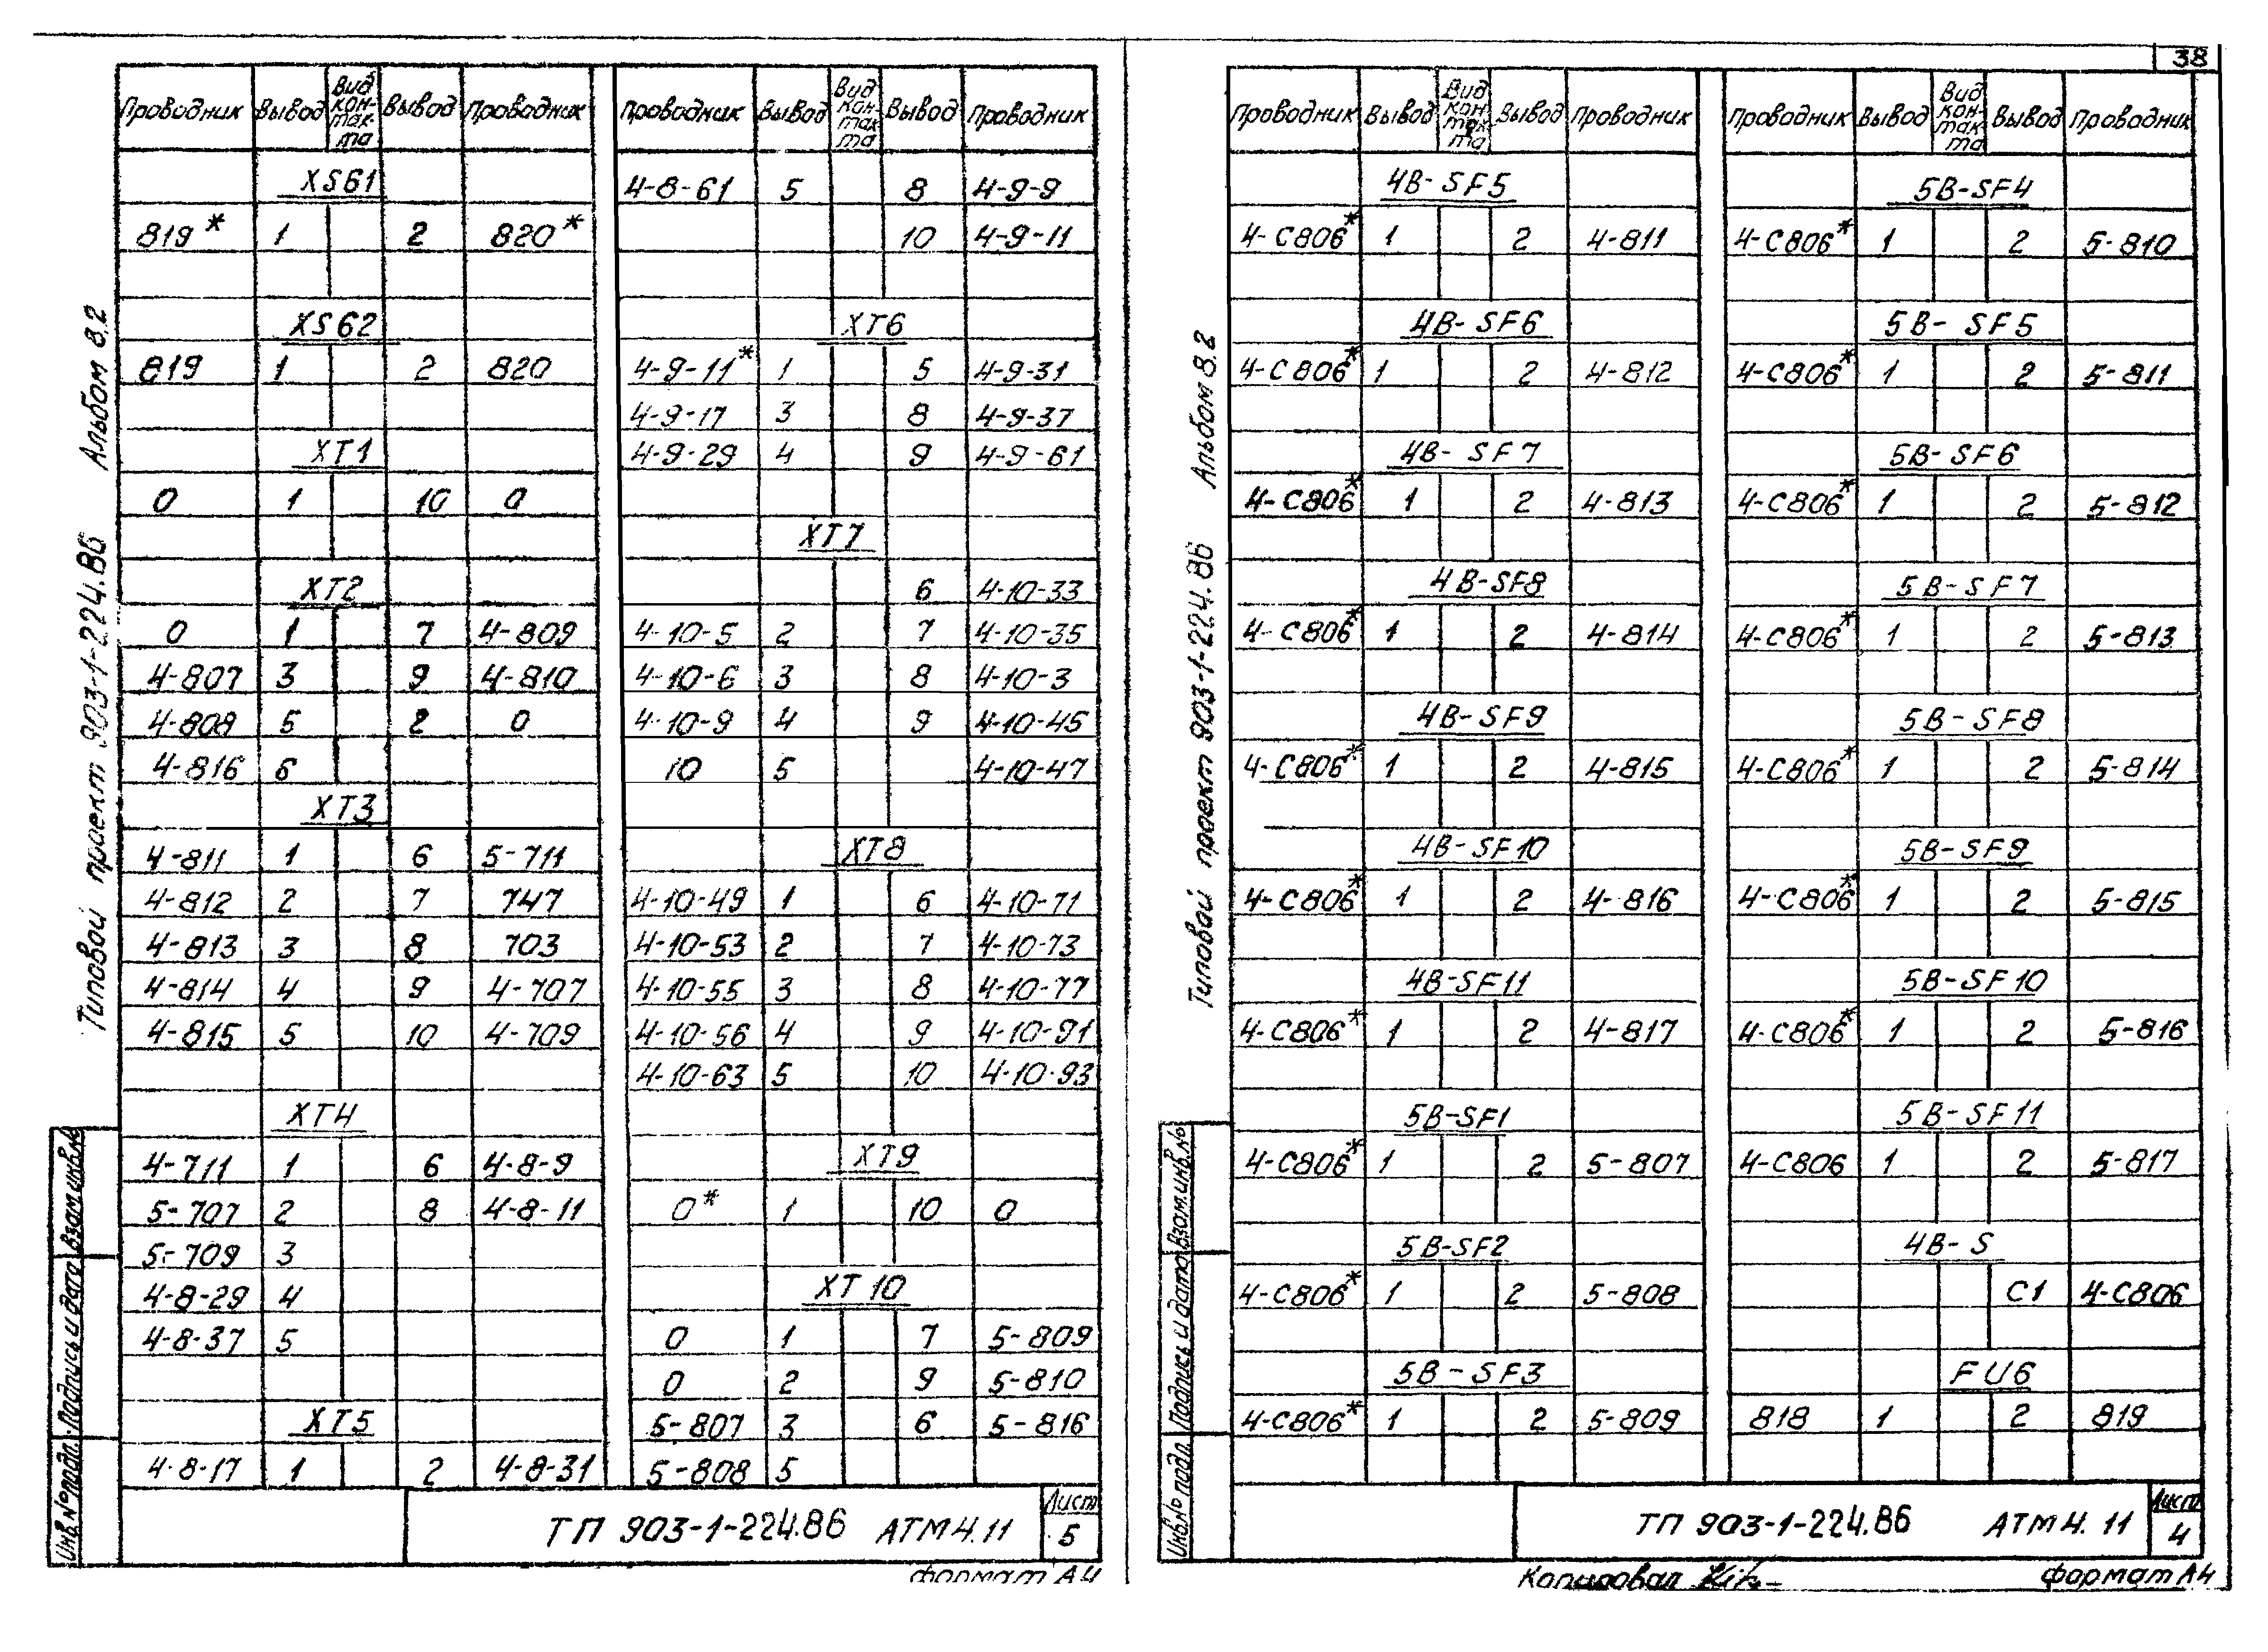 38
Проводник Вывод Вид кон-так-та Вывод Проводник
XS61
819* 1 2 820*
XS62
819 1 2 820
XT1
0 1 10 0
XT2
0 1 7 4-809
4-807 3 9 4-810
4-808 5 2 0
4-816 6
XT3
4-811 1 6 5-711
4-812 2 7 747
4-813 3 8 703
4-814 4 9 4-707
4-815 5 10 4-709
XT4
4-711 1 6 4-8-9
5-707 2 8 4-8-11
5-709 3
4-8-29 4
4-8-37 5
XT5
4-8-17 1 2 4-8-31
Проводник Вывод Вид кон-так-та Вывод Проводник
4-8-61 5 8 4-9-9
10 4-9-11
XT6
4-9-11* 1 5 4-9-31
4-9-17 3 8 4-9-37
4-9-29 4 9 4-9-61
XT7
6 4-10-33
4-10-5 2 7 4-10-35
4-10-6 3 8 4-10-3
4-10-9 4 9 4-10-45
10 5 4-10-47
XT8
4-10-49 1 6 4-10-71
4-10-53 2 7 4-10-73
4-10-55 3 8 4-10-77
4-10-56 4 9 4-10-91
4-10-63 5 10 4-10-93
XT9
0* 1 10 0
XT10
0 1 7 5-809
0 2 9 5-810
5-807 3 6 5-816
5-808 5
Типовой проект 903-1-224.86 Альбом 8.2
Инв.№ подл. Подпись и дата Взам.инв.№
ТП 903-1-224.86 АТМ4.11
Лист
5
формат А4
Проводник Вывод Вид кон-так-та Вывод Проводник
4В-SF5
4-С806* 1 2 4-811
4В-SF6
4-С806* 1 2 4-812
4В-SF7
4-С806* 1 2 4-813
4В-SF8
4-С806* 1 2 4-814
4В-SF9
4-С806* 1 2 4-815
4В-SF10
4-С806* 1 2 4-816
4В-SF11
4-С806* 1 2 4-817
5В-SF1
4-С806* 1 2 5-807
5В-SF2
4-С806* 1 2 5-808
5В-SF3
4-С806* 1 2 5-809
Проводник Вывод Вид кон-так-та Вывод Проводник
5В-SF4
4-С806* 1 2 5-810
5В-SF5
4-С806* 1 2 5-811
5В-SF6
4-С806* 1 2 5-812
5В-SF7
4-С806* 1 2 5-813
5В-SF8
4-С806* 1 2 5-814
5В-SF9
4-С806* 1 2 5-815
5В-SF10
4-С806* 1 2 5-816
5В-SF11
4-С806 1 2 5-817
4В-S
С1 4-С806
FU6
818 1 2 819
Типовой проект 903-1-224.86 Альбом 8.2
Инв.№ подл. Подпись и дата Взам.инв.№
ТП 903-1-224.86 АТМ4.11
Лист
4
Копировал
формат А4